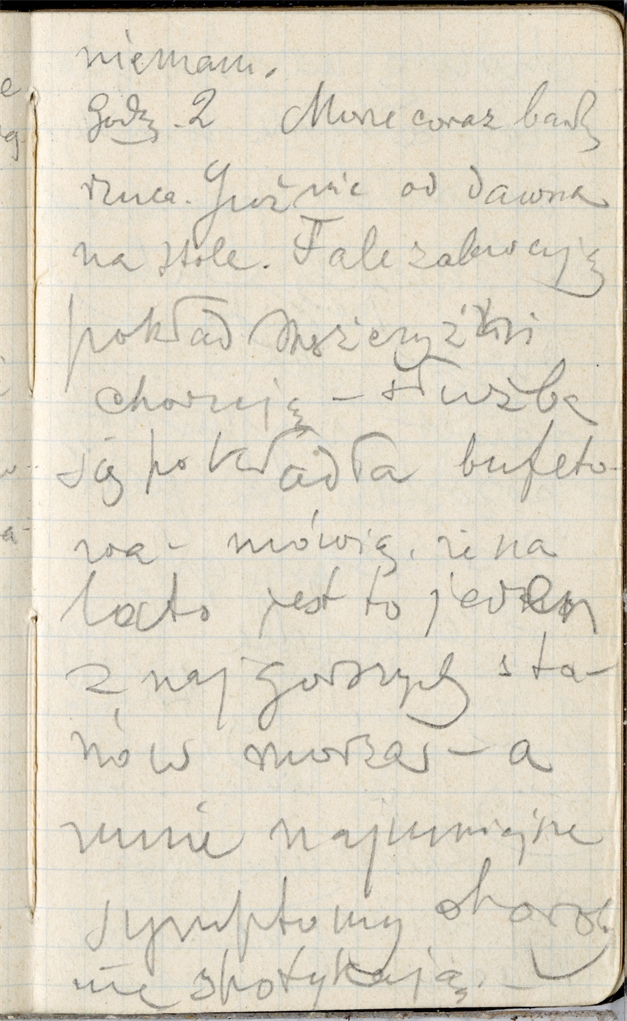 niemam.
Godz. 2 Morze coraz bardz
rzuca. Już nic od dawna
na stole. Fale zalewają
pokład mężczyźni
chorują – służba
się pokładła bufeto-
wa – mówią, że na
lato jest to jeden
z najgorszych sta-
nów morza – a
mnie najmniejsze
symptomy chorob
nie spotykają. –